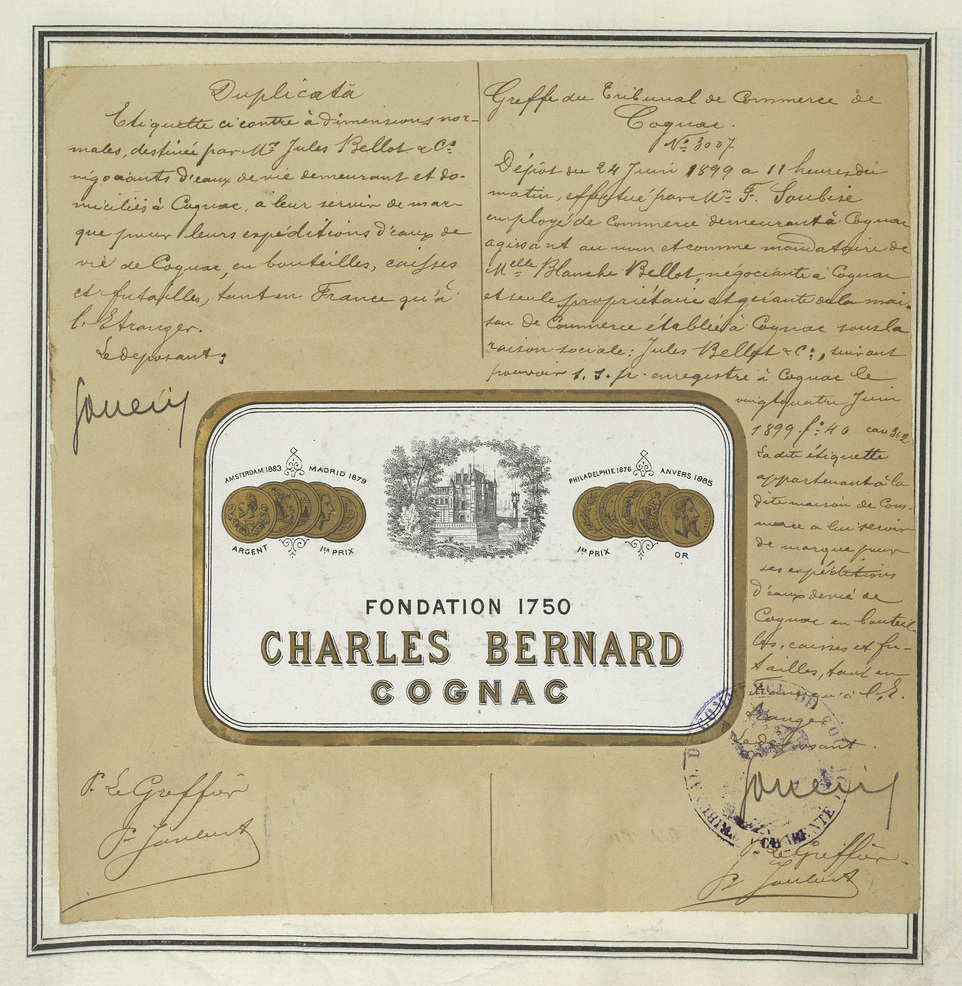 Duplicata
Etiquette ci contre à dimensions nor-
males, destinée par Mr Jules Bellot & Cie
négociants d'eaux de vie demeurant et do-
miciliés à Cognac, à leur servir de mar-
que pour leurs expéditions d'eaux de
vie de Cognac, en bouteilles, caisses
et futailles, tant en France qu'à
l'Etranger.
Le déposant;
Greffe du Tribunal de Commerce de
Cognac.
No 3007
Dépôt du 24 Juin 1899 à 11 heures du
matin, effectué par Mr F. Soubise
employé de commerce demeurant à Cognac
agissant au nom et comme mandataire de
Melle Blanche Bellot, négociante à Cognac
et seule propriétaire et gérante de la mai-
son de Commerce établie à Cognac sous la
raison sociale: Jules Bellot & Cie, suivant
pouvoir s. s. p. enregistré à Cognac le
vingt quatre Juin
1899 fo 40 case 362
La dite étiquette
appartenant à la
dite maison de Com-
merce a lui servir
de marque pour
ses expéditions
d'eaux de vie de
Cognac en bouteil-
les, caisses et fu-
tailles, tant en
France qu'à l'E-
tranger
Le déposant.
AMSTERDAM 1883 MADRID 1879
ARGENT 1ER PRIX
PHILADELPHIE 1876 ANVERS 1885
1ER PRIX OR
FONDATION 1750
CHARLES BERNARD
COGNAC
P. Le Greffier
P. Le Greffier